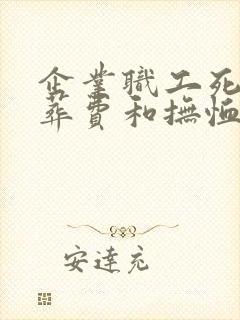 企業職工死
葬費和撫恤
安達充